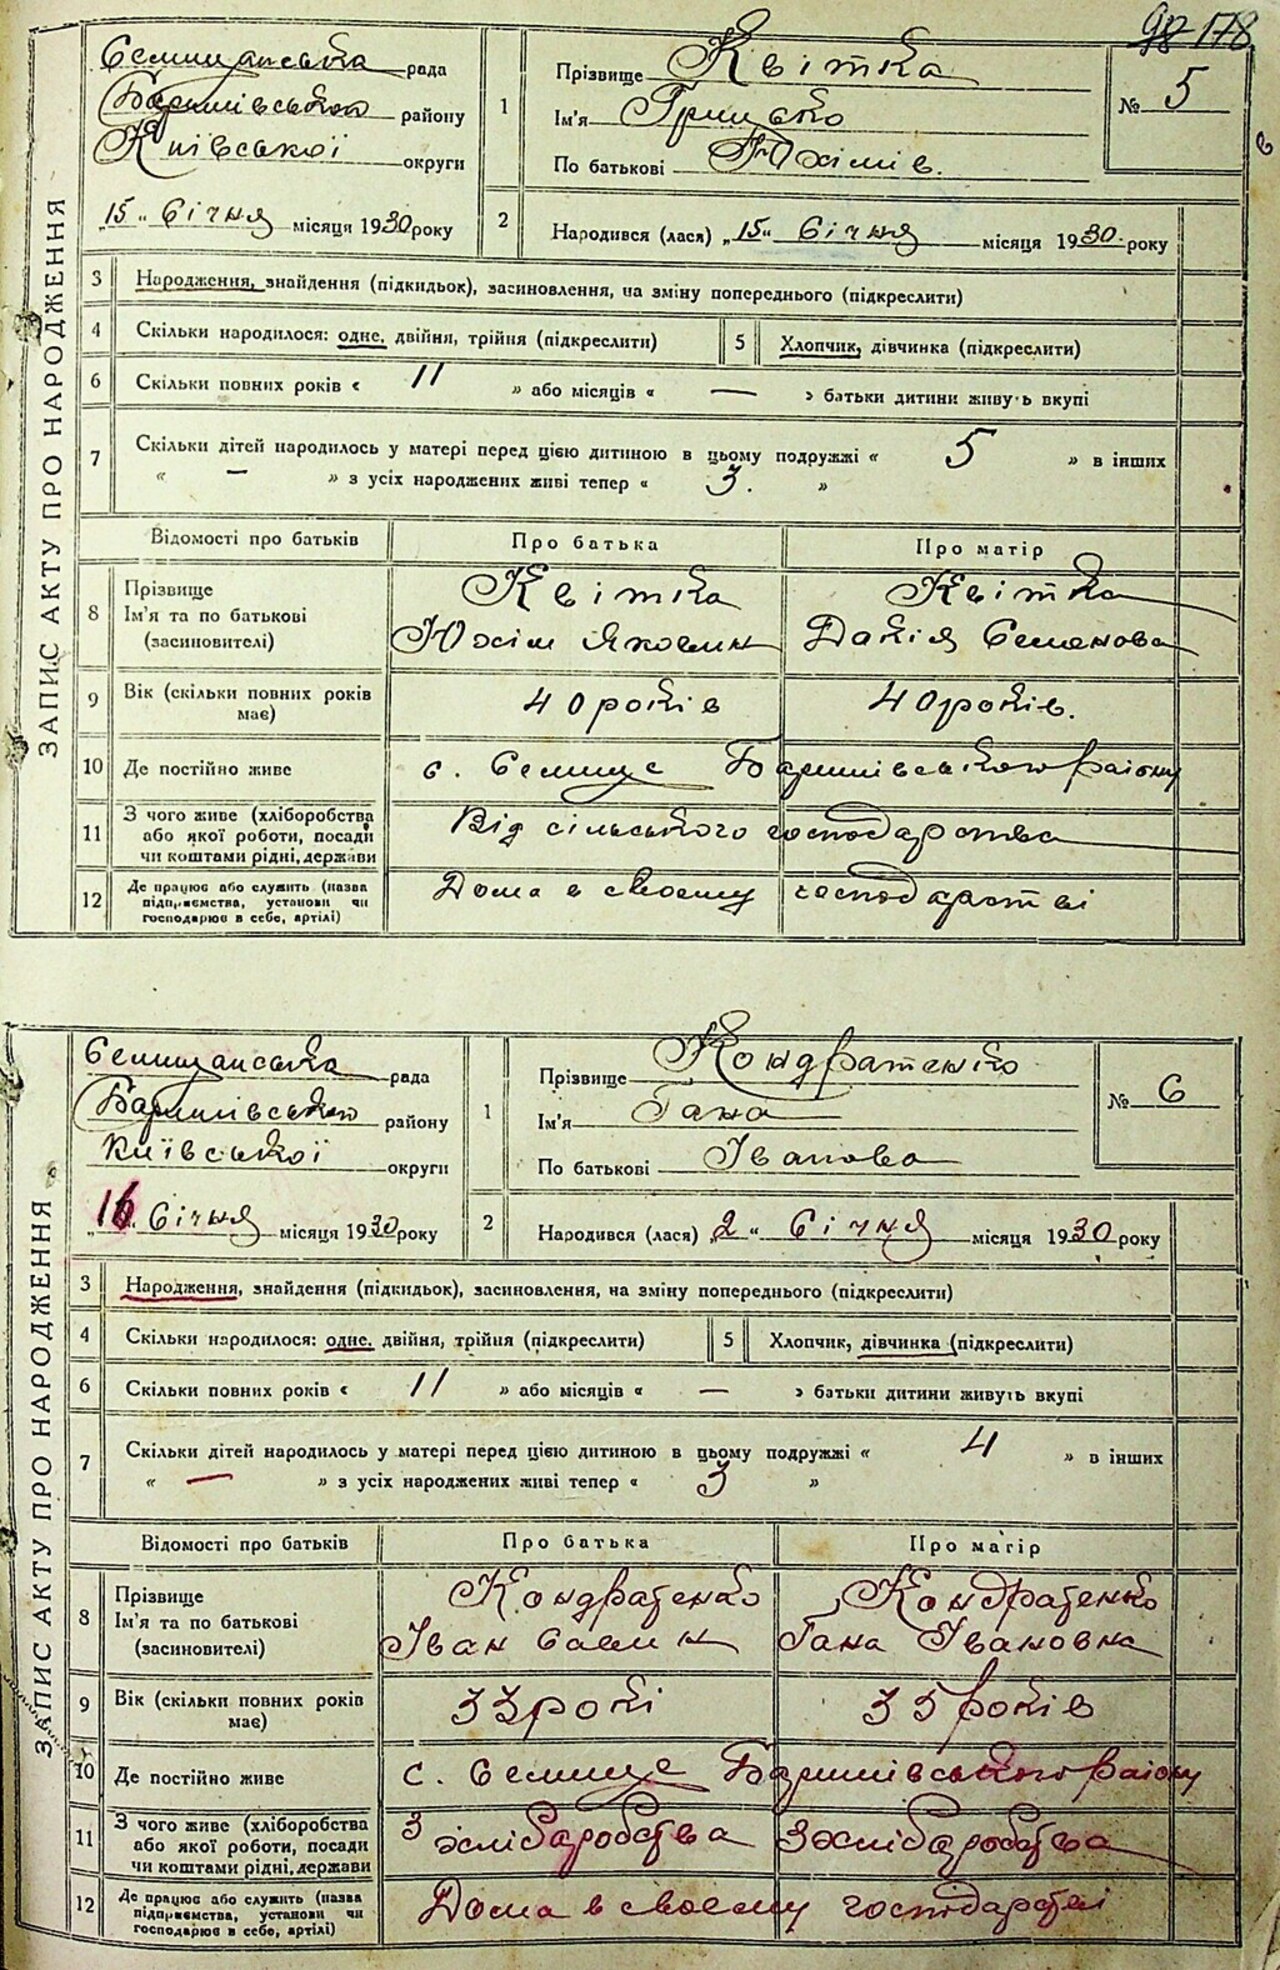 98 178
Селищанська рада
Баришівського району
Київської округи
„15„ Січня місяця 1930 року
1
Прізвище Квітка
Ім'я Грицько
По батькові Юхімів.
№ 5
2
Народився (лася) „15„ Січня місяця 1930. року
ЗАПИС АКТУ ПРО НАРОДЖЕННЯ
3 Народження, знайдення (підкидьок), засиновлення, на зміну попереднього (підкреслити)
4 Скільки народилося: одне, двійня, трійня (підкреслити)
5 Хлопчик, дівчинка (підкреслити)
6 Скільки повних років « 11 » або місяців « — » батьки дитини живуть вкупі
7 Скільки дітей народилось у матері перед цією дитиною в цьому подружжі « 5 » в інших
« — » з усіх народжених живі тепер « 3. »
Відомості про батьків Про батька Про матір
8 Прізвище
Ім'я та по батькові
(засиновителі)
Квітка
Юхім Яковин
Квітка
Семенова
9 Вік (скільки повних років
має)
40 років
40 років.
10 Де постійно живе
с. Селище Баришівського району
11 З чого живе (хліборобства
або якої роботи, посади
чи коштами рідні, держави
Від сільського господарства
12 Де працює або служить (назва
підприємства, установи чи
господарює в себе, артілі)
Дома в своєму господарстві
Селищанська рада
Баришівського району
Київської округи
„16„ Січня місяця 1930 року
1
Прізвище Кондратенко
Ім'я Гана
По батькові Іванова
№ 6
2
Народився (лася) „2„ Січня місяця 1930 року
ЗАПИС АКТУ ПРО НАРОДЖЕННЯ
3 Народження, знайдення (підкидьок), засиновлення, на зміну попереднього (підкреслити)
4 Скільки народилося: одне, двійня, трійня (підкреслити)
5 Хлопчик, дівчинка (підкреслити)
6 Скільки повних років « 11 » або місяців « — » батьки дитини живуть вкупі
7 Скільки дітей народилось у матері перед цією дитиною в цьому подружжі « 4 » в інших
« — » з усіх народжених живі тепер « 3 »
Відомості про батьків Про батька Про матір
8 Прізвище
Ім'я та по батькові
(засиновителі)
Кондратенко
Іван Савин
Кондратенко
Гана Івановна
9 Вік (скільки повних років
має)
33 рокі
35 років
10 Де постійно живе
с. Селище Баришівського району
11 З чого живе (хліборобства
або якої роботи, посади
чи коштами рідні, держави
З хліборобства
З хліборобства
12 Де працює або служить (назва
підприємства, установи чи
господарює в себе, артілі)
Дома в своєму господарстві